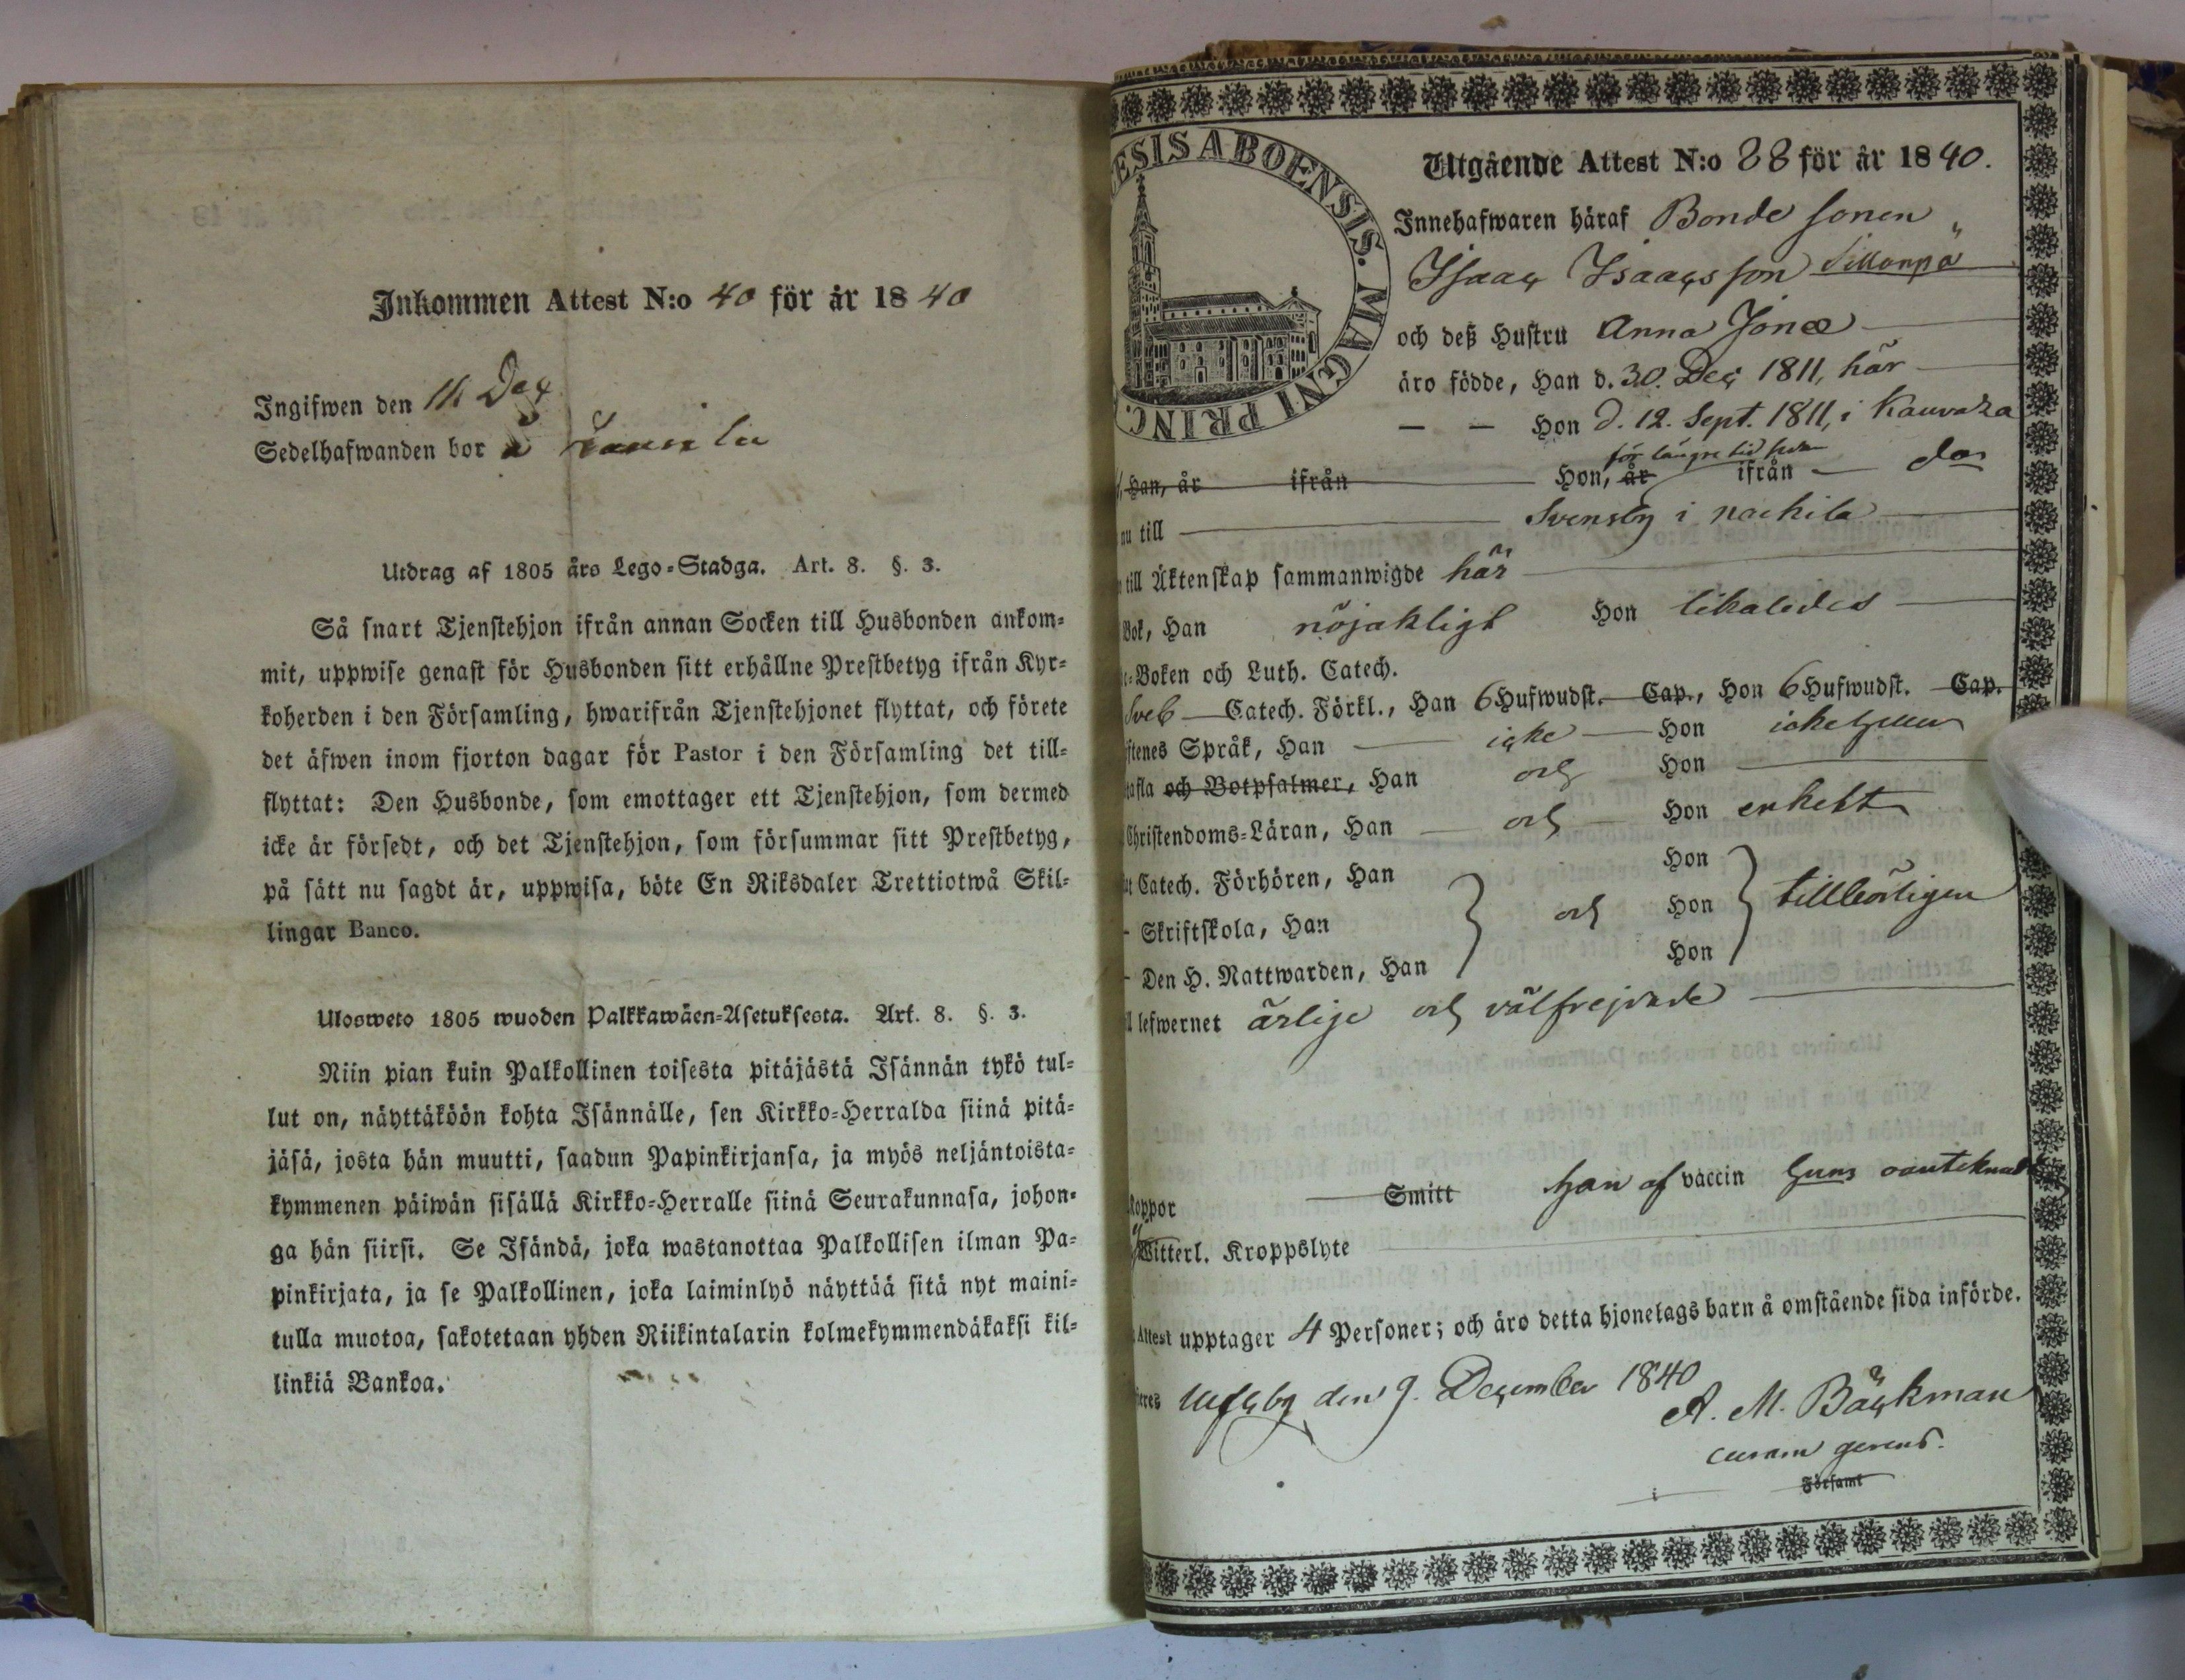 Inkommen Attest N:o 40 för år 1840
Ingifwen den 14 Dec
Sedelhafwanden bor å
Utdrag af 1805 års Lego-Stadga. Art. 8. §. 3.
Så snart Tjenstehjon ifrån annan Socken till Husbonden ankom-
mit, uppwise genast för Husbonden sitt erhållne Prestbetyg ifrån Kyr-
koherden i den Församling, hwarifrån Tjenstehjonet flyttat, och förete
det äfwen inom fjorton dagar för Pastor i den Församling det till-
flyttat: Den Husbonde, som emottager ett Tjenstehjon, som dermed
icke är försedt, och det Tjenstehjon, som försummar sitt Prestbetyg,
på sätt nu sagdt är, uppwisa, böte En Riksdaler Trettiotwå Skil-
lingar Banco.
Ulosweto 1805 wuoden Palkkawäen-Asetuksesta. Art. 8. §. 3.
Niin pian kuin Palkollinen toisesta pitäjästä Isännän tykö tul-
lut on, näyttäköön kohta Isännälle, sen Kirkko-Herralda siinä pitä-
jäsä, josta hän muutti, saadun Papinkirjansa, ja myös neljäntoista-
kymmenen päiwän sisällä Kirkko-Herralle siinä Seurakunnasa, johon-
ga hän siirsi. Se Isändä, joka wastanottaa Palkollisen ilman Pa-
pinkirjata, ja se Palkollinen, joka laiminlyö näyttää sitä nyt maini-
tulla muotoa, sakotetaan yhden Riikintalarin kolmekymmendäkaksi kil-
linkiä Bankoa.
ESIS ABOENSIS. MAGNI PRINC.
Utgående Attest N:o 88 för år 1840.
Innehafwaren häraf Bonde sonen
Isaac Isaacsson Sillanpä
och deß Hustru Anna Jonæ
äro födde, Han d. 30. Dec 1811, här
— — Hon d. 12. Sept. 1811, i Kauvatsa
för längre tid sedan
Han, år ifrån Hon, år ifrån do
nu till Svensby i Nackila
till Äktenskap sammanwigde här
Bok, Han nöjakligt Hon likaledes
-Boken och Luth. Catech.
Sveb Catech. Förkl., Han 6 Hufwudst. Cap., Hon 6 Hufwudst. Cap.
ftenes Språk, Han icke Hon icke heller
tafla och Botpsalmer, Han och Hon
Christendoms-Läran, Han och Hon enkelt
Catech. Förhören, Han Hon
Skriftskola, Han och Hon tillbörligen
Den H. Nattwarden, Han Hon
lefwernet ärlige och välfrejdade
Koppor Smitt Han af vaccin Huns oantecknadt
Witterl. Kroppslyte
Attest upptager 4 Personer; och äro detta hjonelags barn å omstående sida införde.
Ulfsby den 9. December 1840
A. M. Bäckman
curam gerens.
i Församl